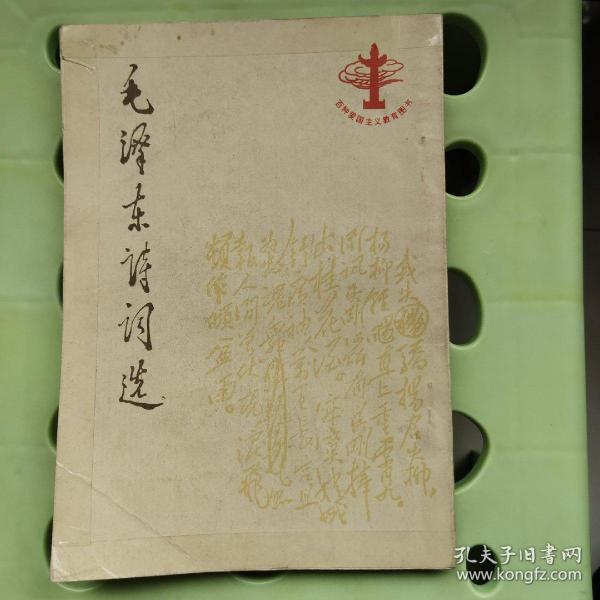 毛泽东诗词选
百种爱国主义教育图书
我失骄杨君失柳。
杨柳轻飏直上重霄九。
问讯吴刚何所有。吴刚捧
出桂花酒。寂寞嫦娥
舒广袖。万里长空且
为忠魂舞。
忽
报人间曾伏虎。泪飞
顿作倾盆雨。
孔夫子旧书网
www.kongfz.com